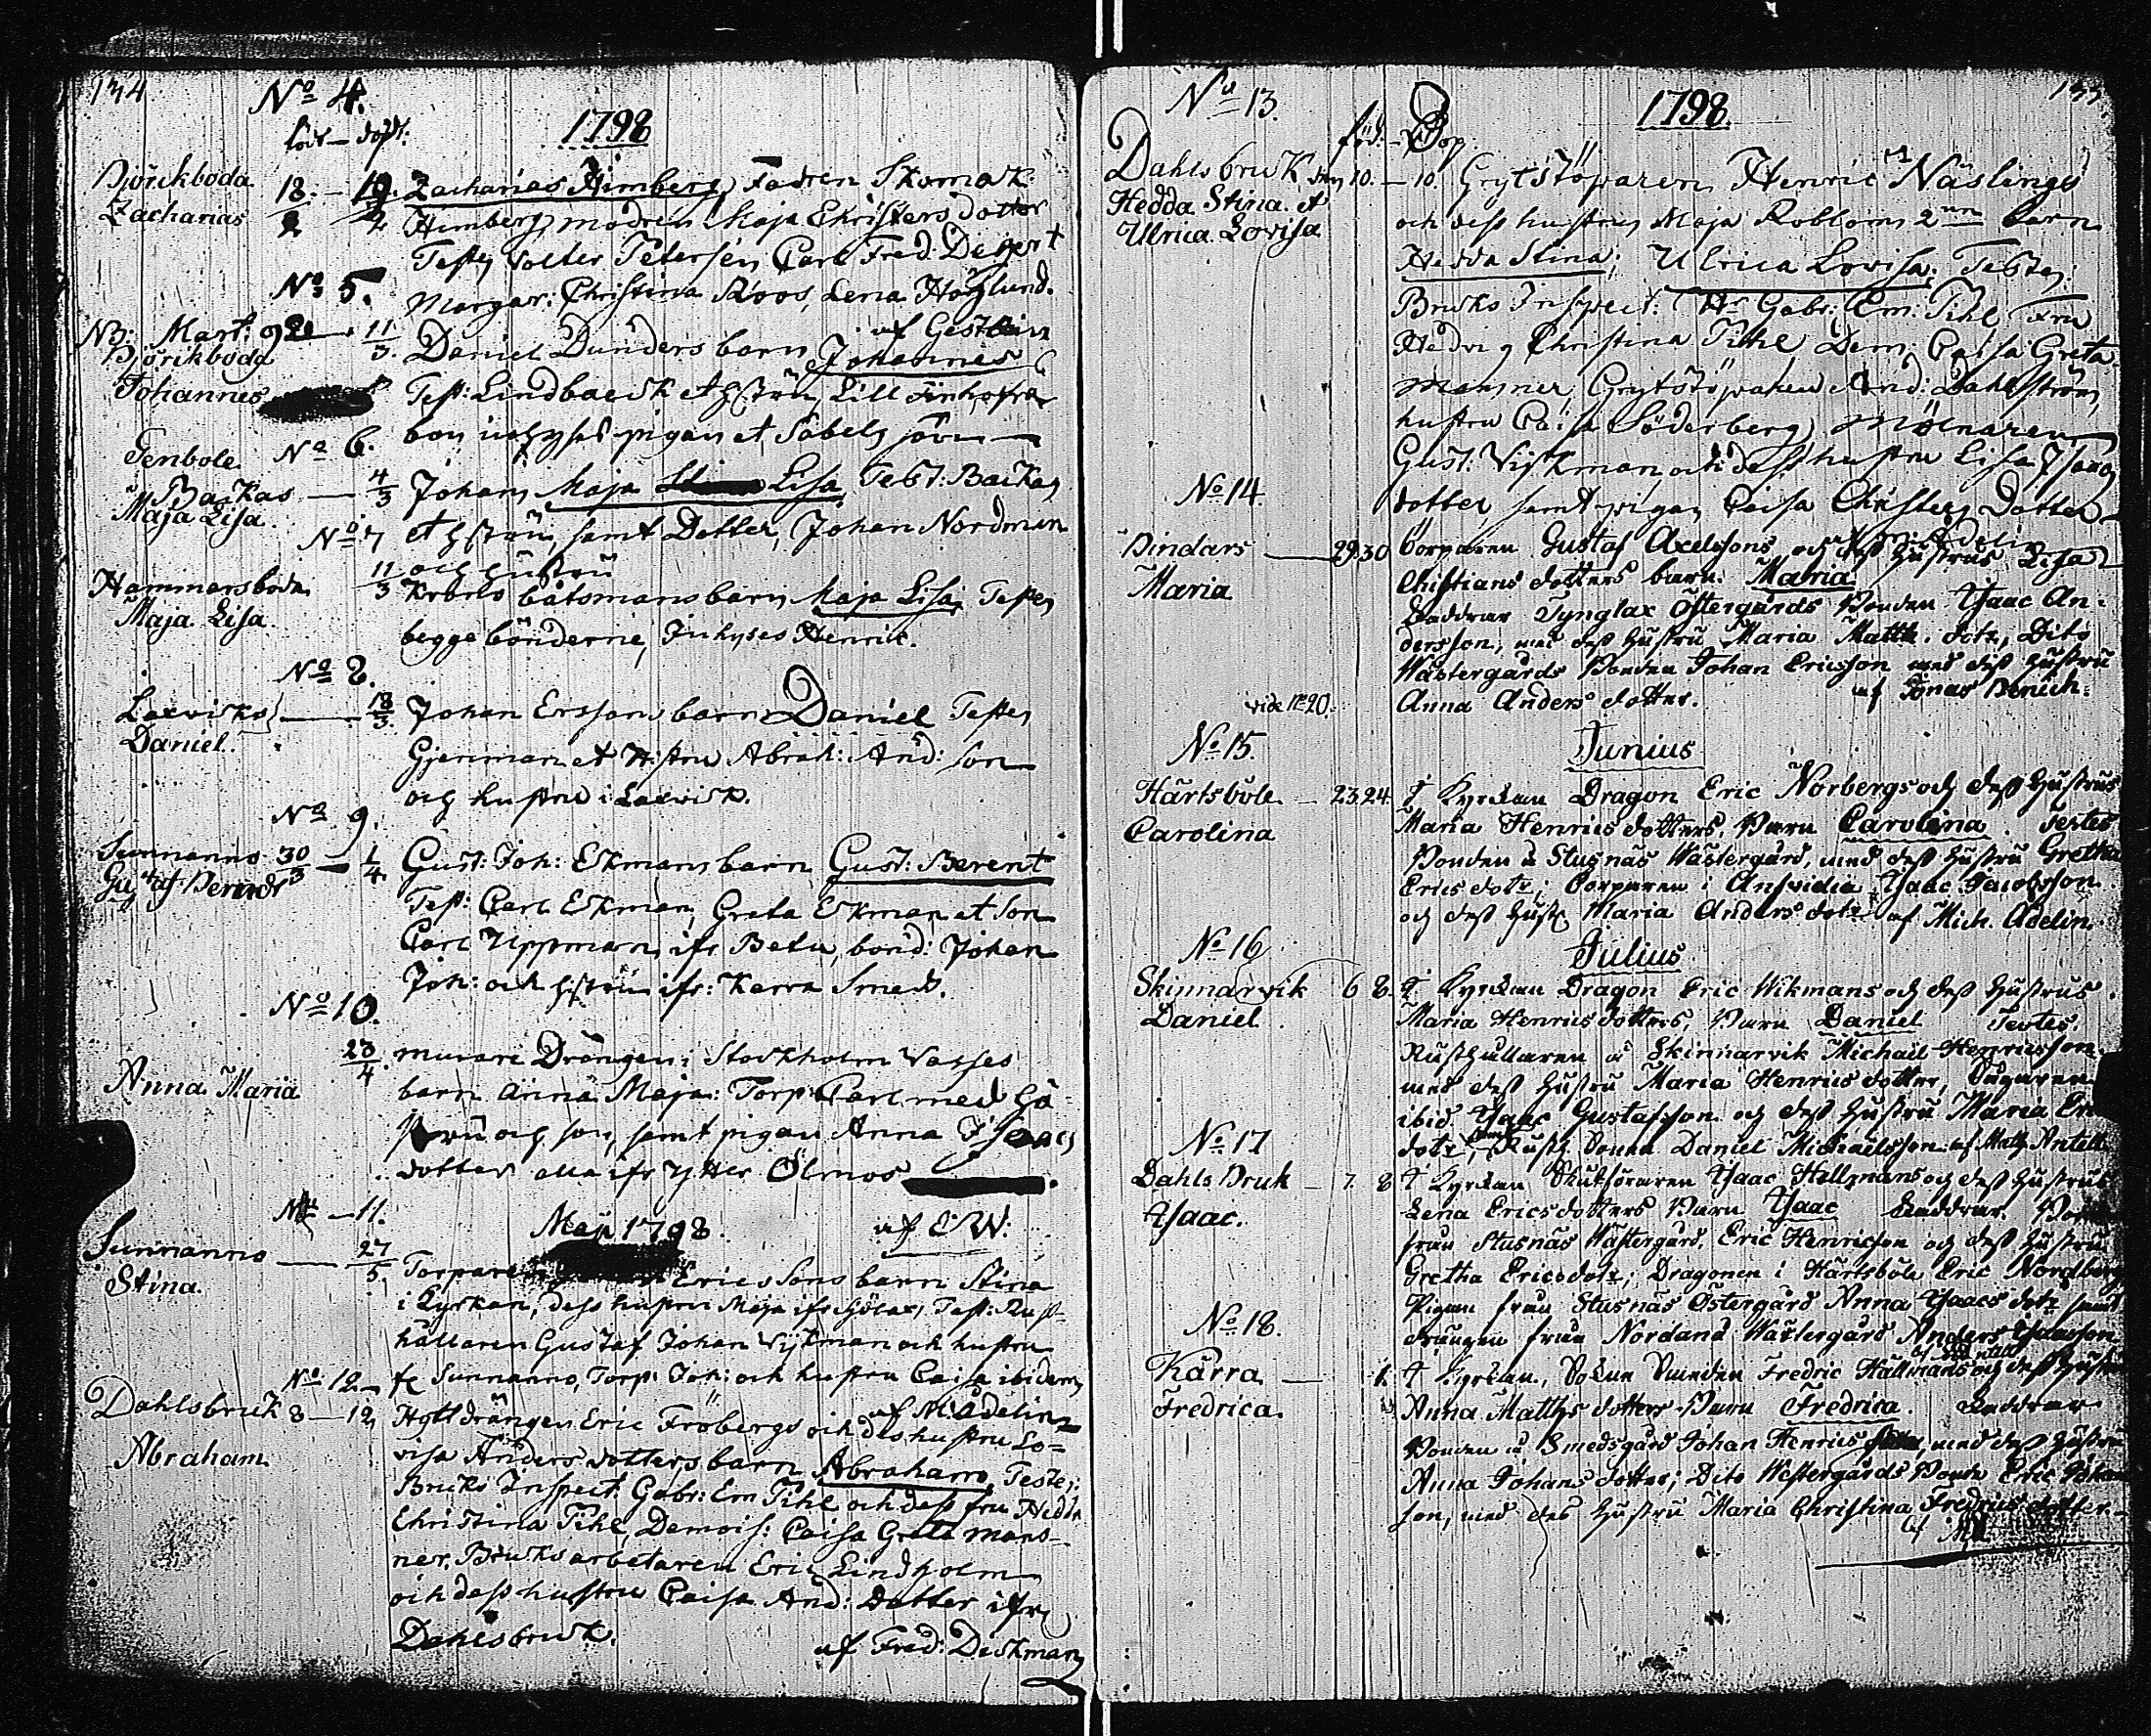 134
No 4.
föd - döpt.
1798
Björckboda 18. - 19. Zacharias Himberg, Fadren Skomak:
Zacharias 2 2 Himberg, modren Maja Christersdotter
Test. Wolter Petersén Carl Fred. Degert
No 5. Margar: Christina Roos, Lena Höglund.
af Gestrin
NB: Mart: 9 11/3. Daniel Dunders barn Johannes
Björckboda
Johannes Test: Lindbaeck et hustru, Lill Finhofra
No 6. bon inhyses pigan et Sabels son
Tenbole
Backas 4/3 Johans Maja Lisa Test: Backas
Maja Lisa
No 7 et hustru, samt Dotter, Johan Nordman
och hustru
Hammarsboda 11/3 Krono båtsmans barn Maja Lisa. Testes
Maja Lisa begge bönderne, Inhyses Henric.
No 8.
Laxviks 18/3. Johan Erssons barn Daniel Testes
Daniel. Gjerman et H:stru Abrah: And: son
och hustru i Laxvik.
No 9.
Sunnanno 30/3 - 1/4. Gust: Joh: Ekmans barn Gust: Berent
Gustaf Berndt Test: Carl Ekman, Greta Ekman et son
Carl Uppman, ifr Betu, bond: Johan
Joh: och hustru ifr: Karra Smeds.
No 10.
23/4. murare Drängen i Stockholm Wasses
Anna Maria barn Anna Maja: Torp: Carl med hu
stru och son, samt pigan Anna Isaacs
dotter alla ifr Ytter Ölmos
No - 11. Maji 1798. af EW:
Sunnanno 27/5. Torparen Ericssons barn Stina
Stina. i Kyrkan, dess hustru Maja ifr Test: Rust
hållaren Gustaf Johan Wijkman och hustru
No 12. fr Sunnanno, Torp: Joh: och hustru Caisa ibidem
af M Adelin
Dahlsbruk 8 - 12, Hyttdrängen Eric Fröbergs och dess hustru Lo=
Abraham visa Anders dotters barn Abraham, Teste:
Bruks Inspect. Gabr: Em Tihl och dess fru Hedv
Christina Tihl, Demois: Caisa Greta Mons-
ner. Bruksarbetaren Eric Lindholm
och dess hustru Caisa And: Dotter ifr
Dahlsbruk.
af Fred: Deckman
135
No 13. 1798.
föd: - Döp.
Dahlsbruk, den 10. - 10. Grytstöparen Henric Näslings
Hedda Stina. et och dess hustrus Maja Robloms 2ne barn
Ulrica Lovisa Hedda Stina, Ulrica Lovisa. Testes:
Bruks Inspect: Hr Gabr: Em: Tihl Fru
Hedvig Christina Tihl, Dem: Caisa Greta
Monsner, Grytstöparen And: Dahlström,
hustru Caisa Söderberg, Mölnaren
Gust: Vikman, och dess hustru Lisa Isaacs
No 14. dotter, samt pigan Caisa Christers Dotter
af M Adelin
Bindars 29.30 Torparen Gustaf Axelssons och dess hustrus Lisa
Maria Christians dotters barn. Maria
Faddrar Tynglax Östergårds Bonden Isaac An-
dersson, med dess hustru Maria Matth. dotr, Dito
Wästergårds Bonden Johan Ericsson med dess hustru
Anna Anders dotter. af Jonas Benich.
vide No 20.
Junius
No 15.
Härtsböle 23.24 I Kyrckan Dragon Eric Norbergs och dess hustrus
Carolina Maria Henrics dotters, Barn Carolina. Testes
Bonden i Stusnäs Wästergård, med dess hustru Gretha
Erics dotr; Torparen i Ansvidia Isaac Jacobsson
och dess hustr Maria Anders dotr af Mich. Adelin.
Julius
No 16
Skinnarvik 6 8. I Kyrckan Dragon Eric Wikmans och dess hustrus
Daniel Maria Henrics dotters, Barn Daniel Testes.
Rusthållaren i Skinnarvik Michail Henricsson
med dess hustru Maria Henrics dotter, Sågaren
ibid. Isaac Gustafsson och dess hustru Maria Eri
No 17 dotr, samt Rusth. Sonen Daniel Michaelsson. af Matt Antell
Dahls Bruk - 7. 8 I Kyrckan Skutföraren Isaac Hellmans och dess hustrus
Isaac. Lena Ericsdotters Barn Isaac Faddrar. Bonden
från Stusnäs Wästergård, Eric Henricson och dess hustru
Gretha Ericsdotr; Dragonen i Härtsböle Eric Nordberg
Pigan från Stusnäs Östergård Anna Isaacs dotr samt
No 18. drängen från Nordanå Wästergård Anders Isaacson
af Antell
Kärra - 1. I Kyrckan, Fredric Hällmans och dess hustru
Fredrica. Anna Matths dotters Barn Fredrica. Faddrar
Bonden i Smedsgård Johan Henrics son, med dess hustru
Anna Johans dotter; Dito Westergårds Bonde Eric Johan
son, med des hustru Maria Christina Fredrics dotter.
af MA